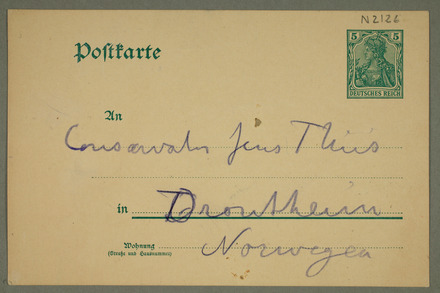 N2126
Postkarte
5 5
DEUTSCHES REICH
An
Conservator Jens Thiis
in Drontheim
Wohnung
(Straße und Hausnummer)
Norwegen